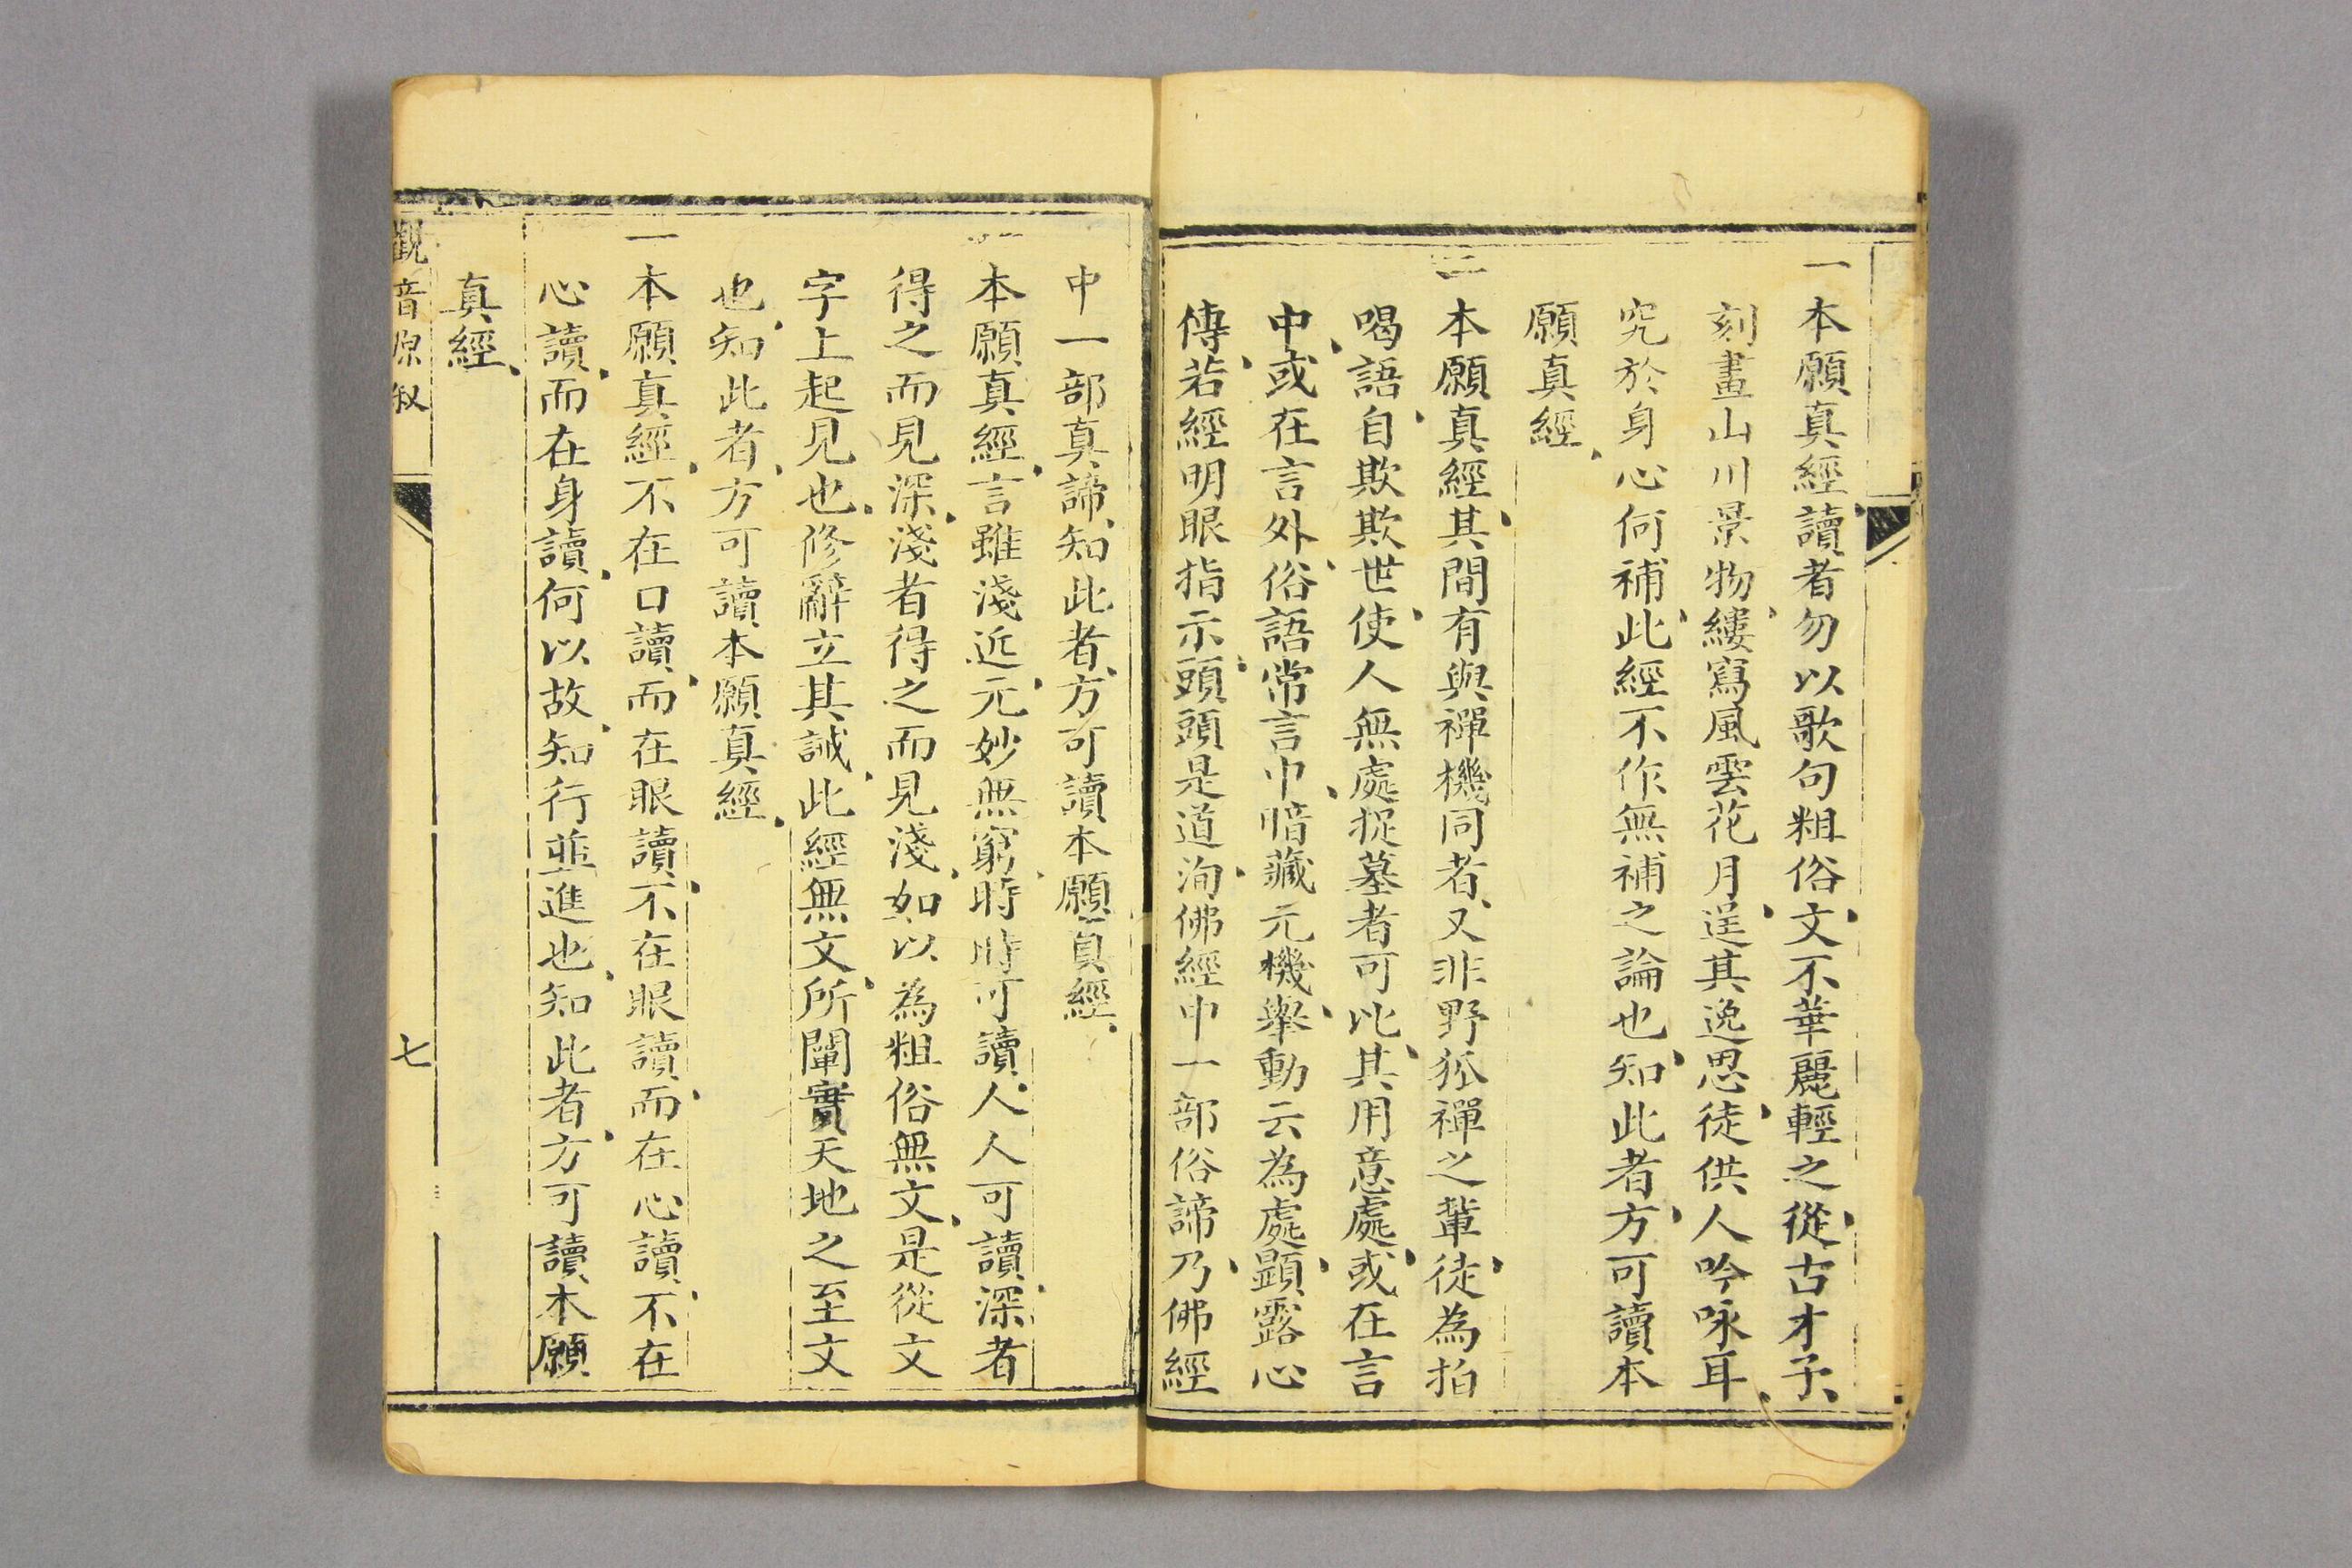 一本願真經讀者勿以歌句粗俗文不華麗輕之從古才子、
刻畫山川景物縷寫風雲花月逞其逸思徒供人吟咏耳、
究於身心何補此經不作無補之論也知此者方可讀本
願真經、
一本願真經其間有與禪機同者、又非野狐禪之輩徒為拍
喝語自欺欺世使人無處捉摹者可比其用意處或在言
中或在言外俗語常言中暗藏元機舉動云為處顯露心
傳若經明眼指示頭頭是道洵佛經中一部俗諦乃佛經
中一部真諦、知此者、方可讀本願真經、
一本願真經言雖淺近元妙無窮時時可讀人人可讀深者
得之而見深淺者得之而見淺如以為粗俗無文是從文
字上起見也修辭立其誠此經無文所闡實天地之至文
也知此者方可讀本願真經、
一本願真經不在口讀而在眼讀不在眼讀而在心讀不在
心讀而在身讀何以故知行並進也知此者方可讀本願
真經、
觀音原叙
七